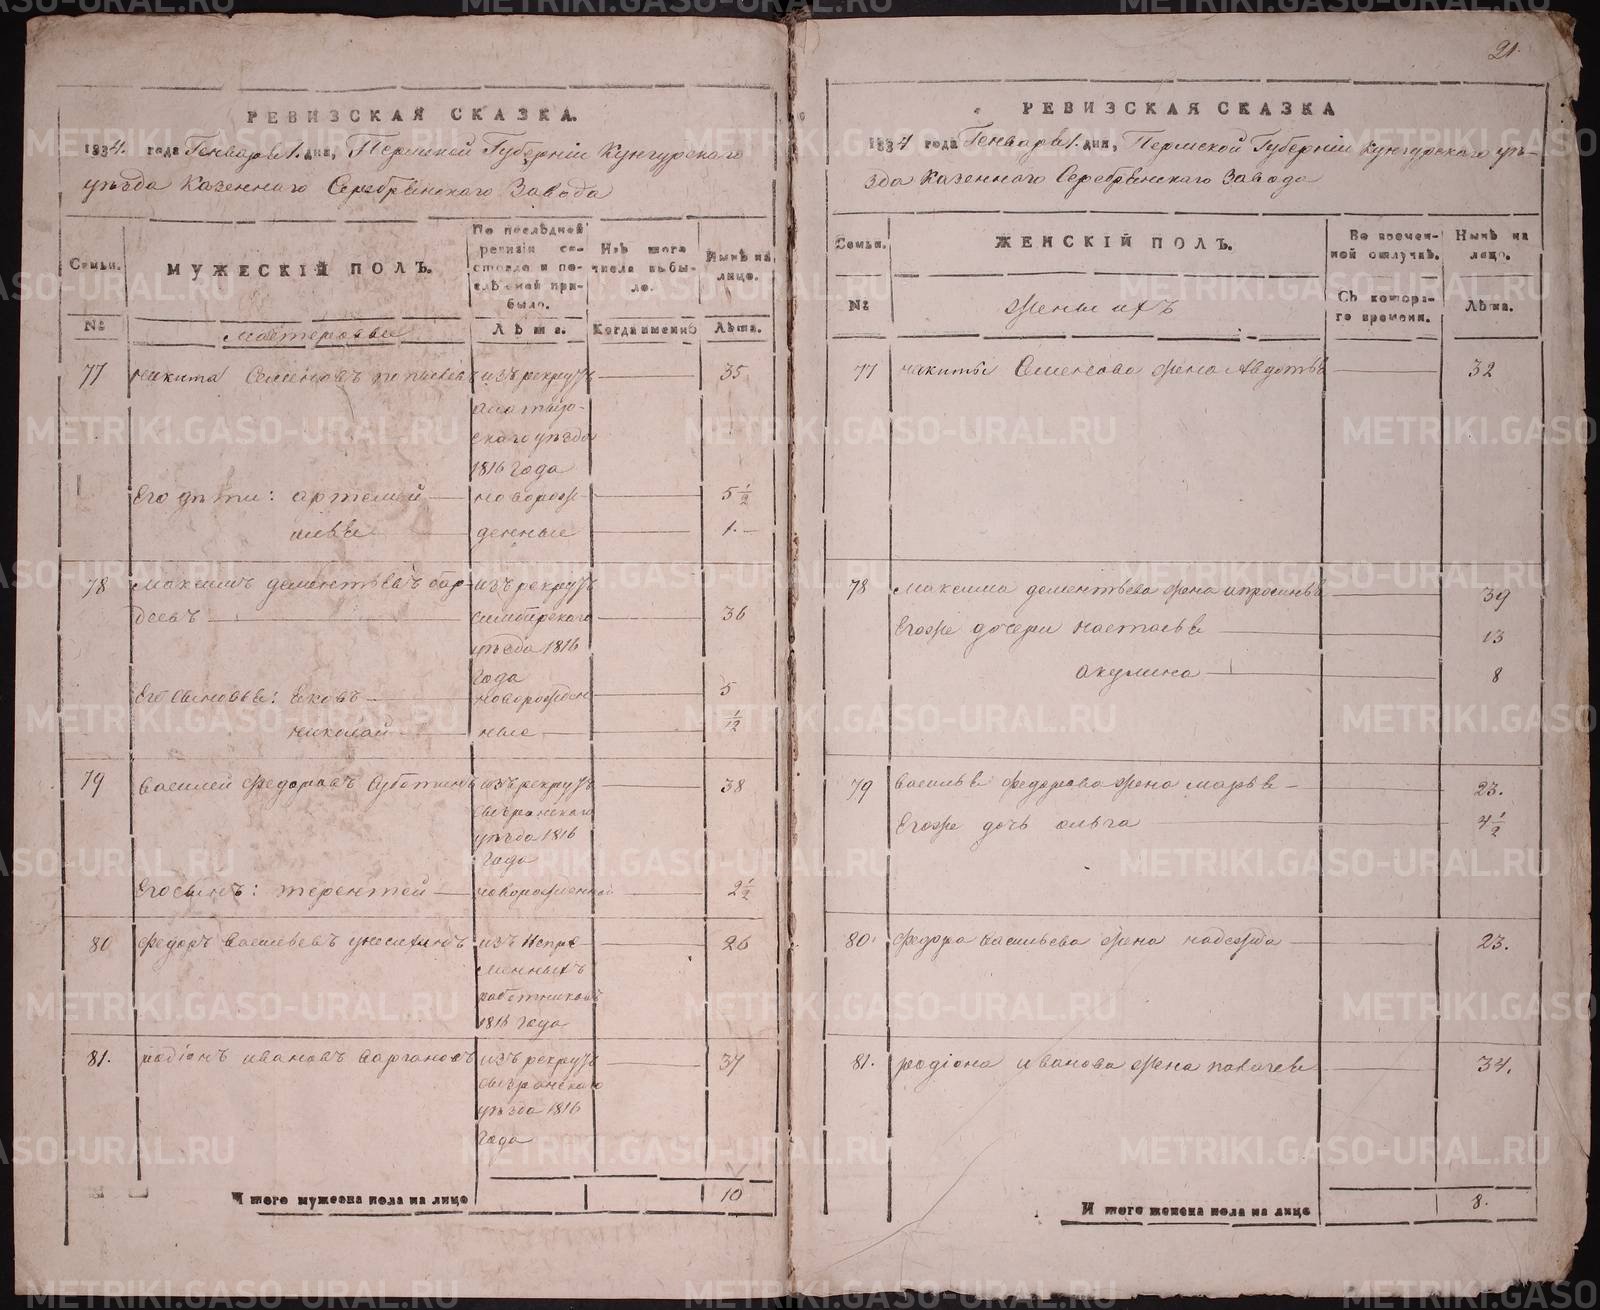 РЕВИЗСКАЯ СКАЗКА.
1834. года Генваря 1. дня, Пермской Губерніи Кунгурского
уѣзда Казеннаго Серебрянского Завода
Семьи.
МУЖЕСКІЙ ПОЛЪ.
По послѣдней ревизіи состояло и послѣ оной прибыло.
Изъ того числа выбыло.
Нынѣ на лицо.
№
мастеровые
Лѣта.
Когда именно
Лѣта.
77 никита Семеновъ изъ рекрутъ 35
скаго уѣзда
1816 года
Его дѣти: артемій новорож- 5 1/2
денные 1. —
78 Максимъ дементьевъ бар- изъ рекрутъ
деевъ симбирскаго 36
уѣзда 1816
года
Его сыновья: Яковъ новорожден 5
николай ные 1/12
79 василей федоровъ Суботинъ изъ рекрутъ 38
сызранскаго
уѣзда 1816
года
Его сынъ: терентей новорожденной 2 1/2
80 федоръ васильевъ изъ Непре 26
менныхъ
работниковъ
1816 года
81. родіонъ ивановъ изъ рекрутъ 37
сызранскаго
уѣзда 1816
года
Итого мужеска пола на лицо 10
21.
РЕВИЗСКАЯ СКАЗКА
1834 года Генваря 1. дня, Пермской Губерніи кунгурскаго уѣ-
зда Казеннаго Серебрянскаго Завода
Семьи.
ЖЕНСКІЙ ПОЛЪ.
Во временной отлучкѣ.
Нынѣ на лицо.
№
жены ихъ
Съ котораго времени.
Лѣта.
77 никиты Семенова жена Авдотья 32
78 максима дементьева жена 39
Егоже дочери настасья 13
акулина 8
79 василья федорова жена марья 23.
Егоже дочь ольга 4 1/2
80. федора васильева жена надежда 23.
81. родіона иванова жена 34.
Итого женска пола на лицо 8.
METRIKI.GASO-URAL.RU